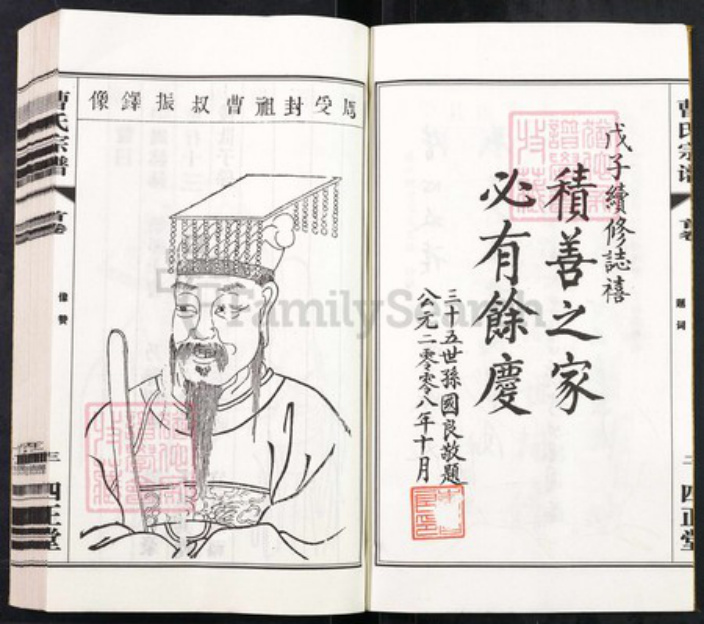 曹氏宗譜
首卷
題词
二
四正堂
戊子續修誌禧
積善之家
必有餘慶
三十五世孫國良敬題
公元二零零八年十月
周受封祖曹叔振鐸像
曹氏宗譜
首卷
像赞
三
四正堂
FamilySearch